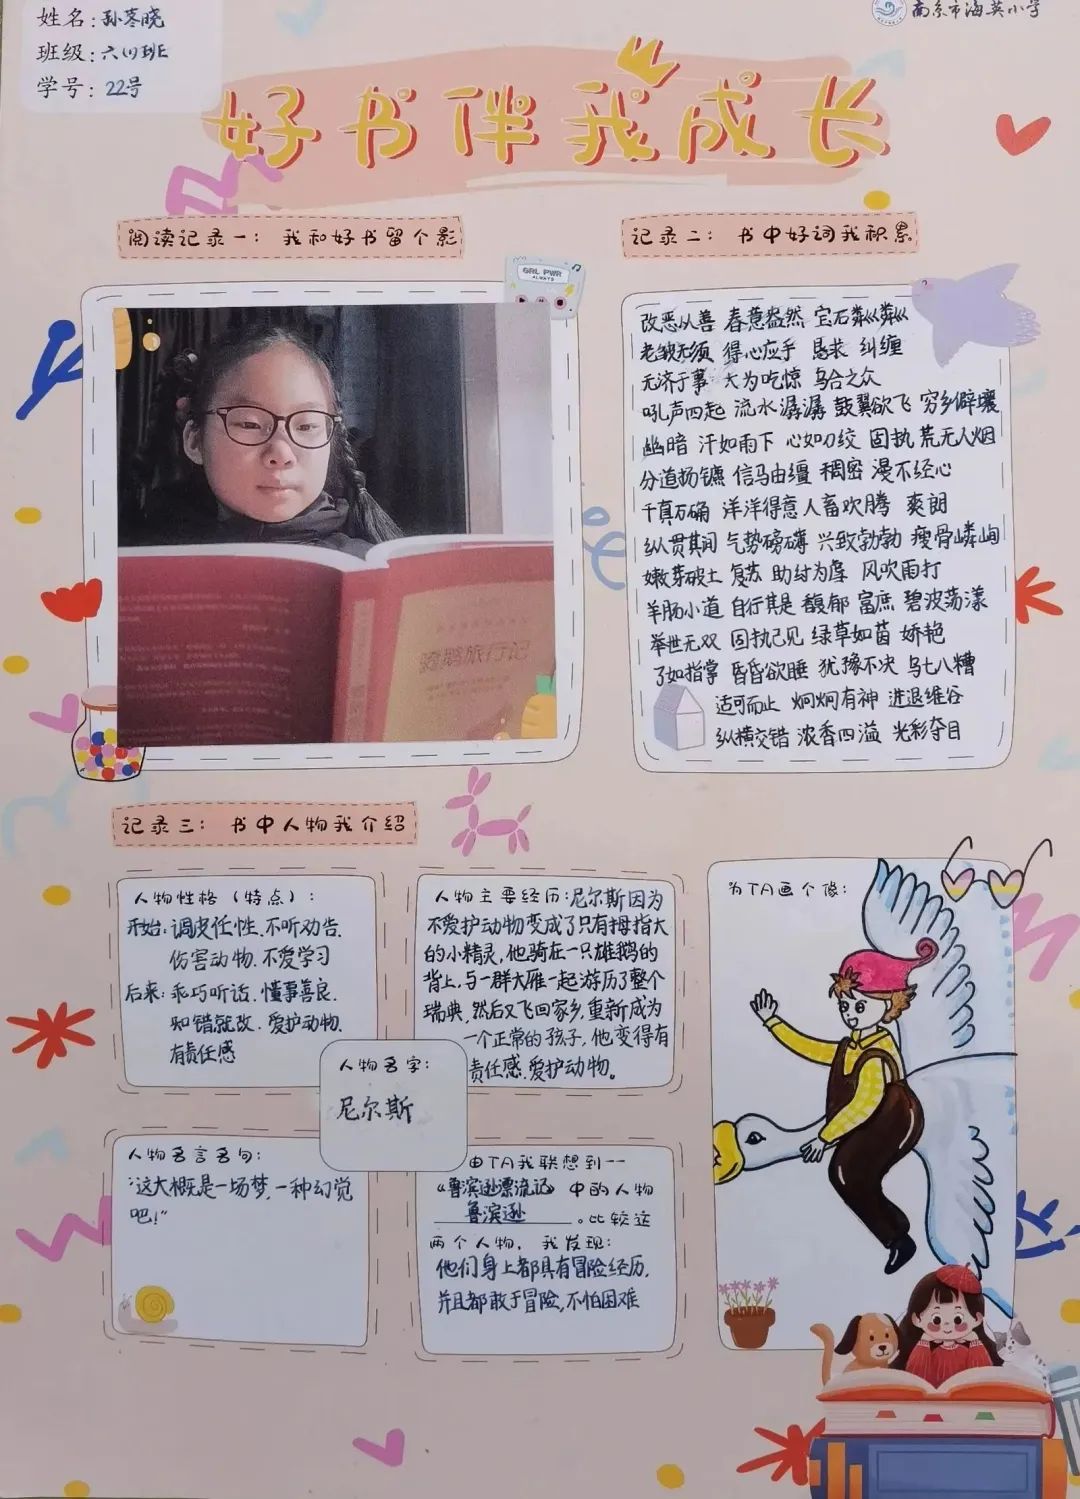 姓名：孙苓晓
班级：六(1)班
学号：22号
南京市海英小学
好书伴我成长
阅读记录一：我和好书留个影
GRL PWR
ALWAYS
骑鹅旅行记
记录二：书中好词我积累
改恶从善 春意盎然 宝石粼粼
老皱无须 得心应手 恳求 纠缠
无济于事 大为吃惊 乌合之众
吼声四起 流水潺潺 鼓翼欲飞 穷乡僻壤
幽暗 汗如雨下 心如刀绞 固执 荒无人烟
分道扬镳 信马由缰 稠密 漫不经心
千真万确 洋洋得意 人畜欢腾 爽朗
纵贯其间 气势磅礴 兴致勃勃 瘦骨嶙峋
嫩芽破土 复苏 助纣为虐 风吹雨打
羊肠小道 自行其是 馥郁 富庶 碧波荡漾
举世无双 固执己见 绿草如茵 娇艳
了如指掌 昏昏欲睡 犹豫不决 乌七八糟
适可而止 炯炯有神 进退维谷
纵横交错 浓香四溢 光彩夺目
记录三：书中人物我介绍
人物性格（特点）：
开始：调皮任性、不听劝告、
伤害动物、不爱学习
后来：乖巧听话、懂事善良、
知错就改、爱护动物、
有责任感
人物主要经历：尼尔斯因为
不爱护动物变成了只有拇指大
的小精灵，他骑在一只雄鹅的
背上，与一群大雁一起游历了整个
瑞典，然后又飞回家乡，重新成为
一个正常的孩子，他变得有
责任感、爱护动物。
人物名字：
尼尔斯
人物名言名句：
“这大概是一场梦，一种幻觉
吧！”
由TA我联想到--
《鲁滨逊漂流记》中的人物
鲁滨逊。比较这
两个人物，我发现：
他们身上都具有冒险经历，
并且都敢于冒险，不怕困难
为TA画个像：